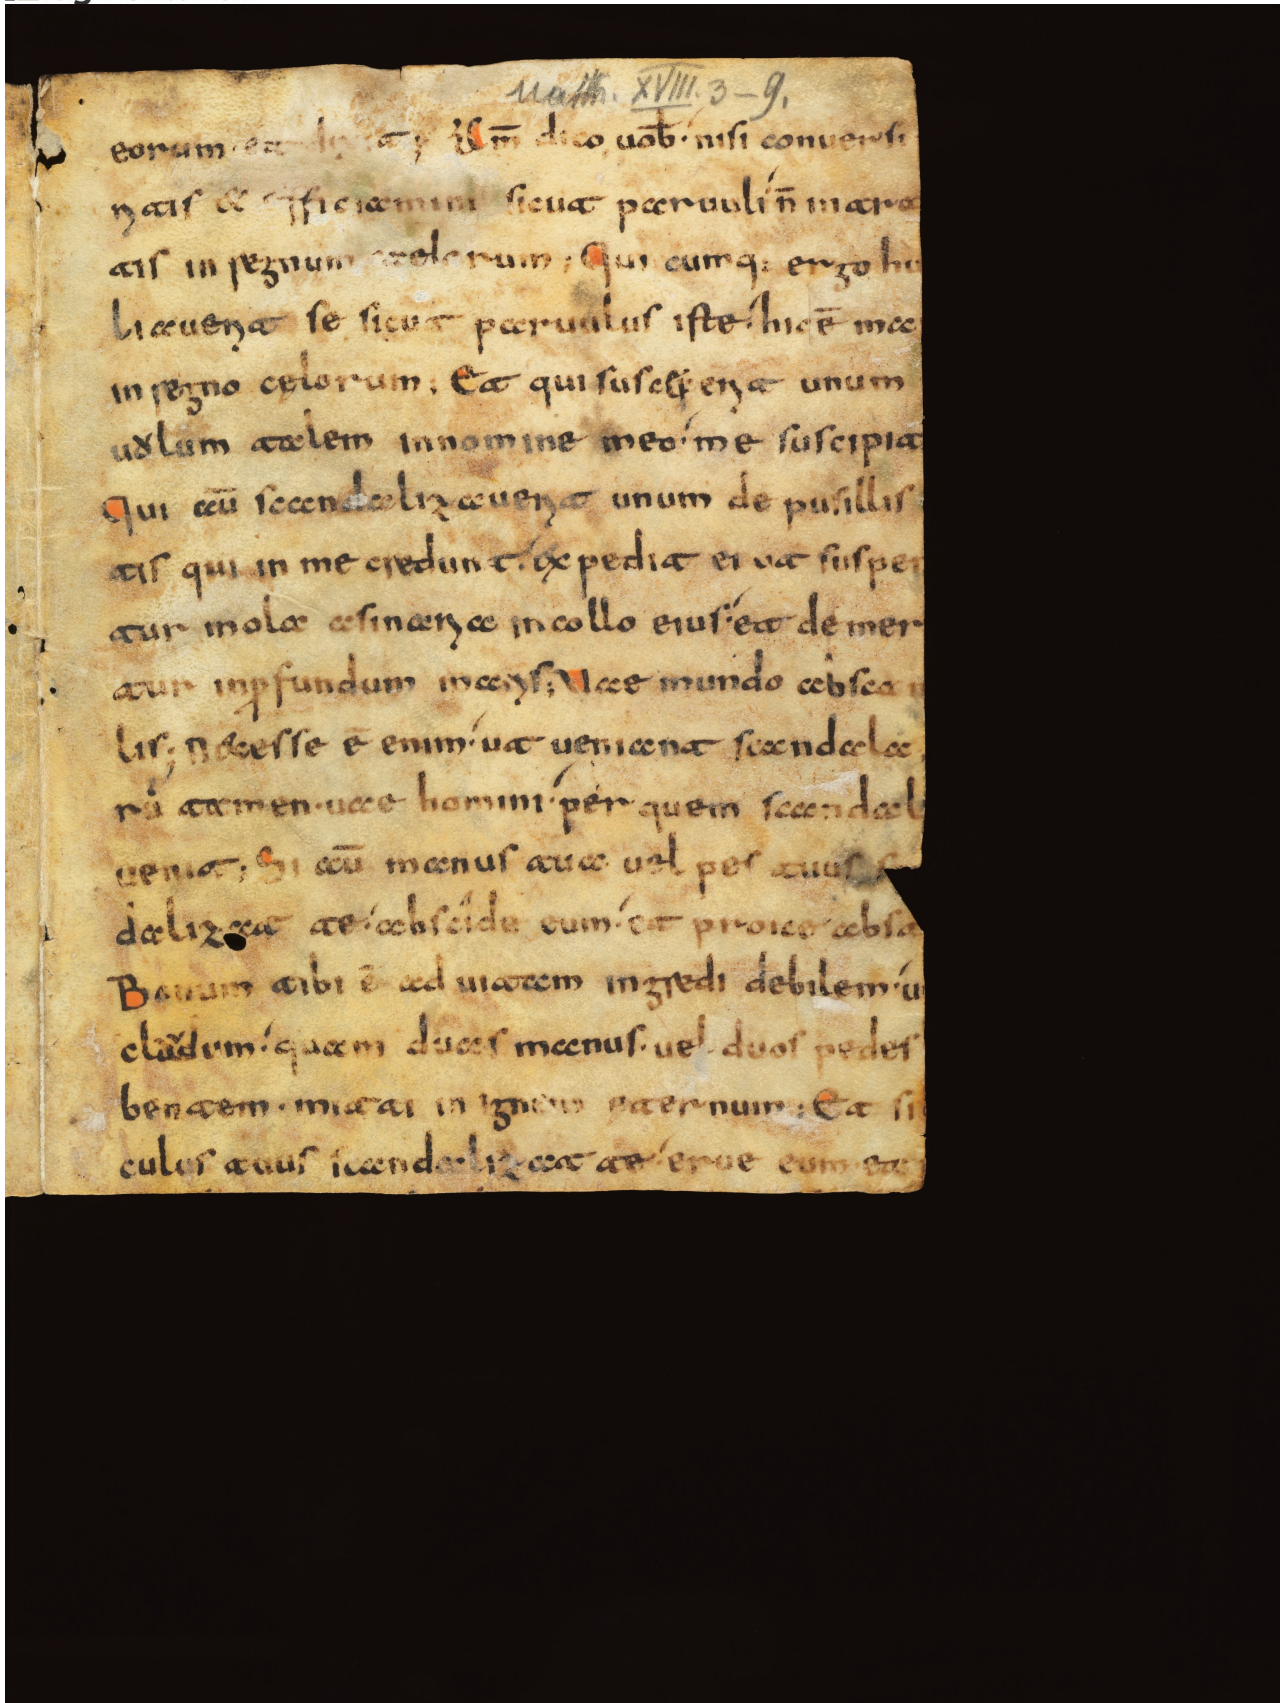 Matth. XVIII. 3-9.
eorum et dixit; Am̄ dico uob· nisi conuersi
ritis & efficiamini sicut paruuli n̄ intra
tis in regnum celorum; Qui cumq; ergo hu
liauerit se sicut paruulus iste hic ē ma
in regno celorum; Et qui susceperit unum
uulum talem in nomine meo me suscipit
Qui aū scandalizauerit unum de pusillis
tis qui in me credunt expedit ei ut suspen
tur mola asinaria in collo eius et demer
tur in ꝓfundum maris; Uae mundo ab scan
lis; Necesse ē enim ut ueniant scandala
rū tamen uae homini per quem scandal
uenit; Si aū manus tua uel pes tuus s
dalizat te abscide eum et proice abs
Bonum tibi ē ad uitam ingredi debilem u
claudum quam duas manus uel duos pedes
bentem mitti in ignem eternum; Et si
culus tuus scandalizat te erue eum et